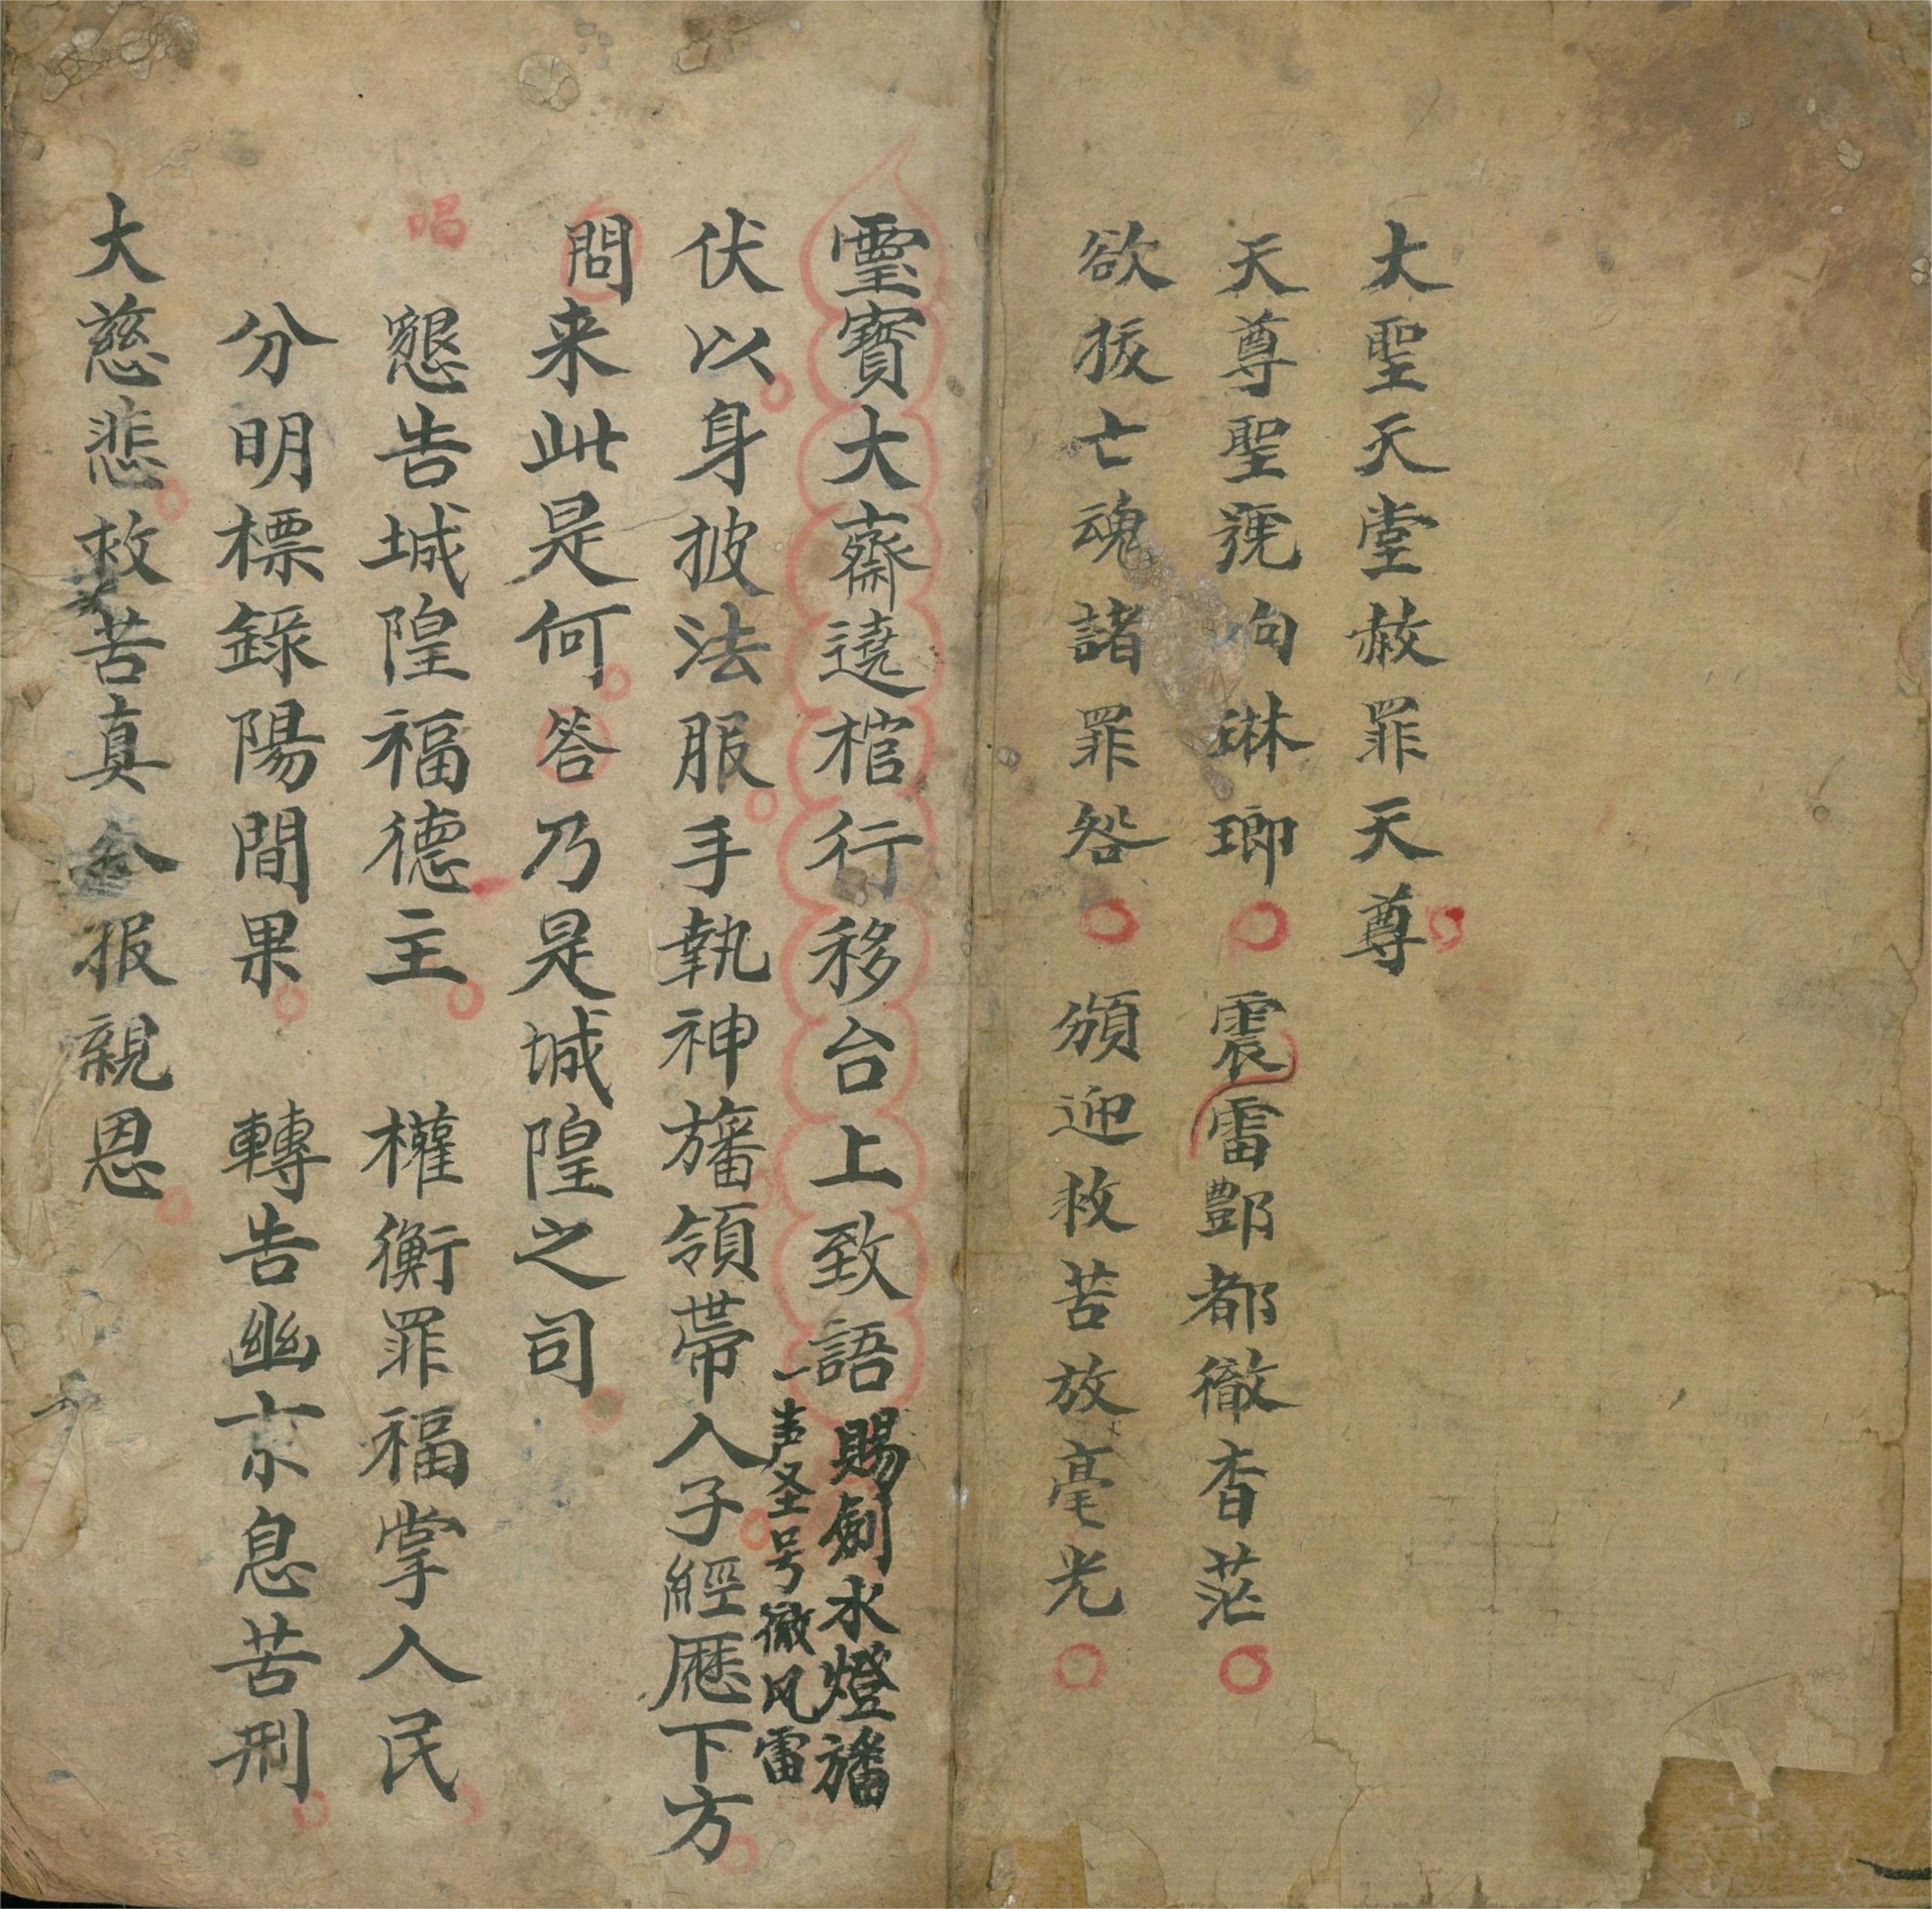 大聖天堂赦罪天尊
天尊聖號向琳瑯 震雷酆都徹杳茫
欲拔亡魂諸罪咎 頒迎救苦放毫光
靈寳大齋遶棺行移台上致語
賜劍水燈旛
一声圣号徹风雷
伏以身披法服手執神旛領帶人子經歷下方
問来此是何答乃是城隍之司
唱
懇告城隍福德主 權衡罪福掌人民
分明標錄陽間果 轉告幽京息苦刑
大慈悲救苦真 報親恩